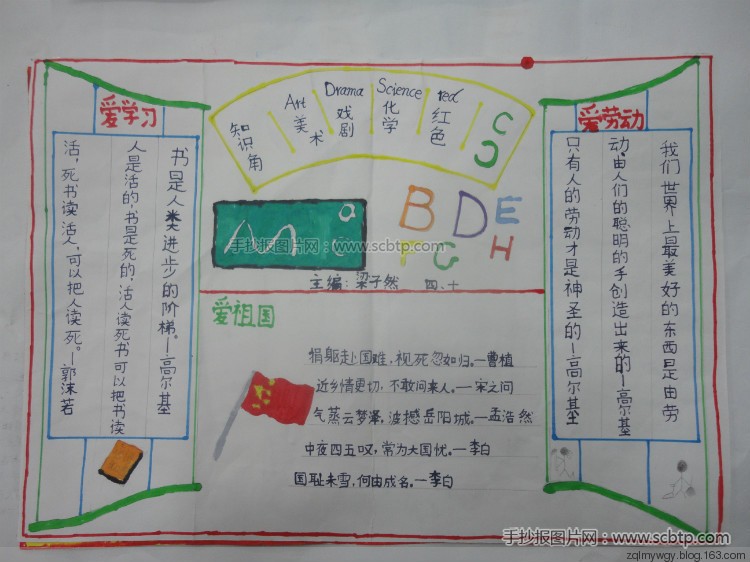 爱学习
书是人类进步的阶梯。—高尔基
人是活的,书是死的,活人读死书可以把书读
活,死书读活人,可以把人读死。—郭沫若
知识角
Art 美术
Drama 戏剧
Science 化学
red 红色
C
B D E
F G H
手抄报图片网：www.scbtp.com
主编:梁子然 四、十
爱祖国
捐躯赴国难,视死忽如归。—曹植
近乡情更切,不敢问来人。—宋之问
气蒸云梦泽,波撼岳阳城。—孟浩然
中夜四五叹,常为大国忧。—李白
国耻未雪,何由成名。—李白
爱劳动
我们世界上最美好的东西是由劳
动、由人们的聪明的手创造出来的—高尔基
只有人的劳动才是神圣的—高尔基
手抄报图片网：www.scbtp.com
zqlmywgy.blog.163.com